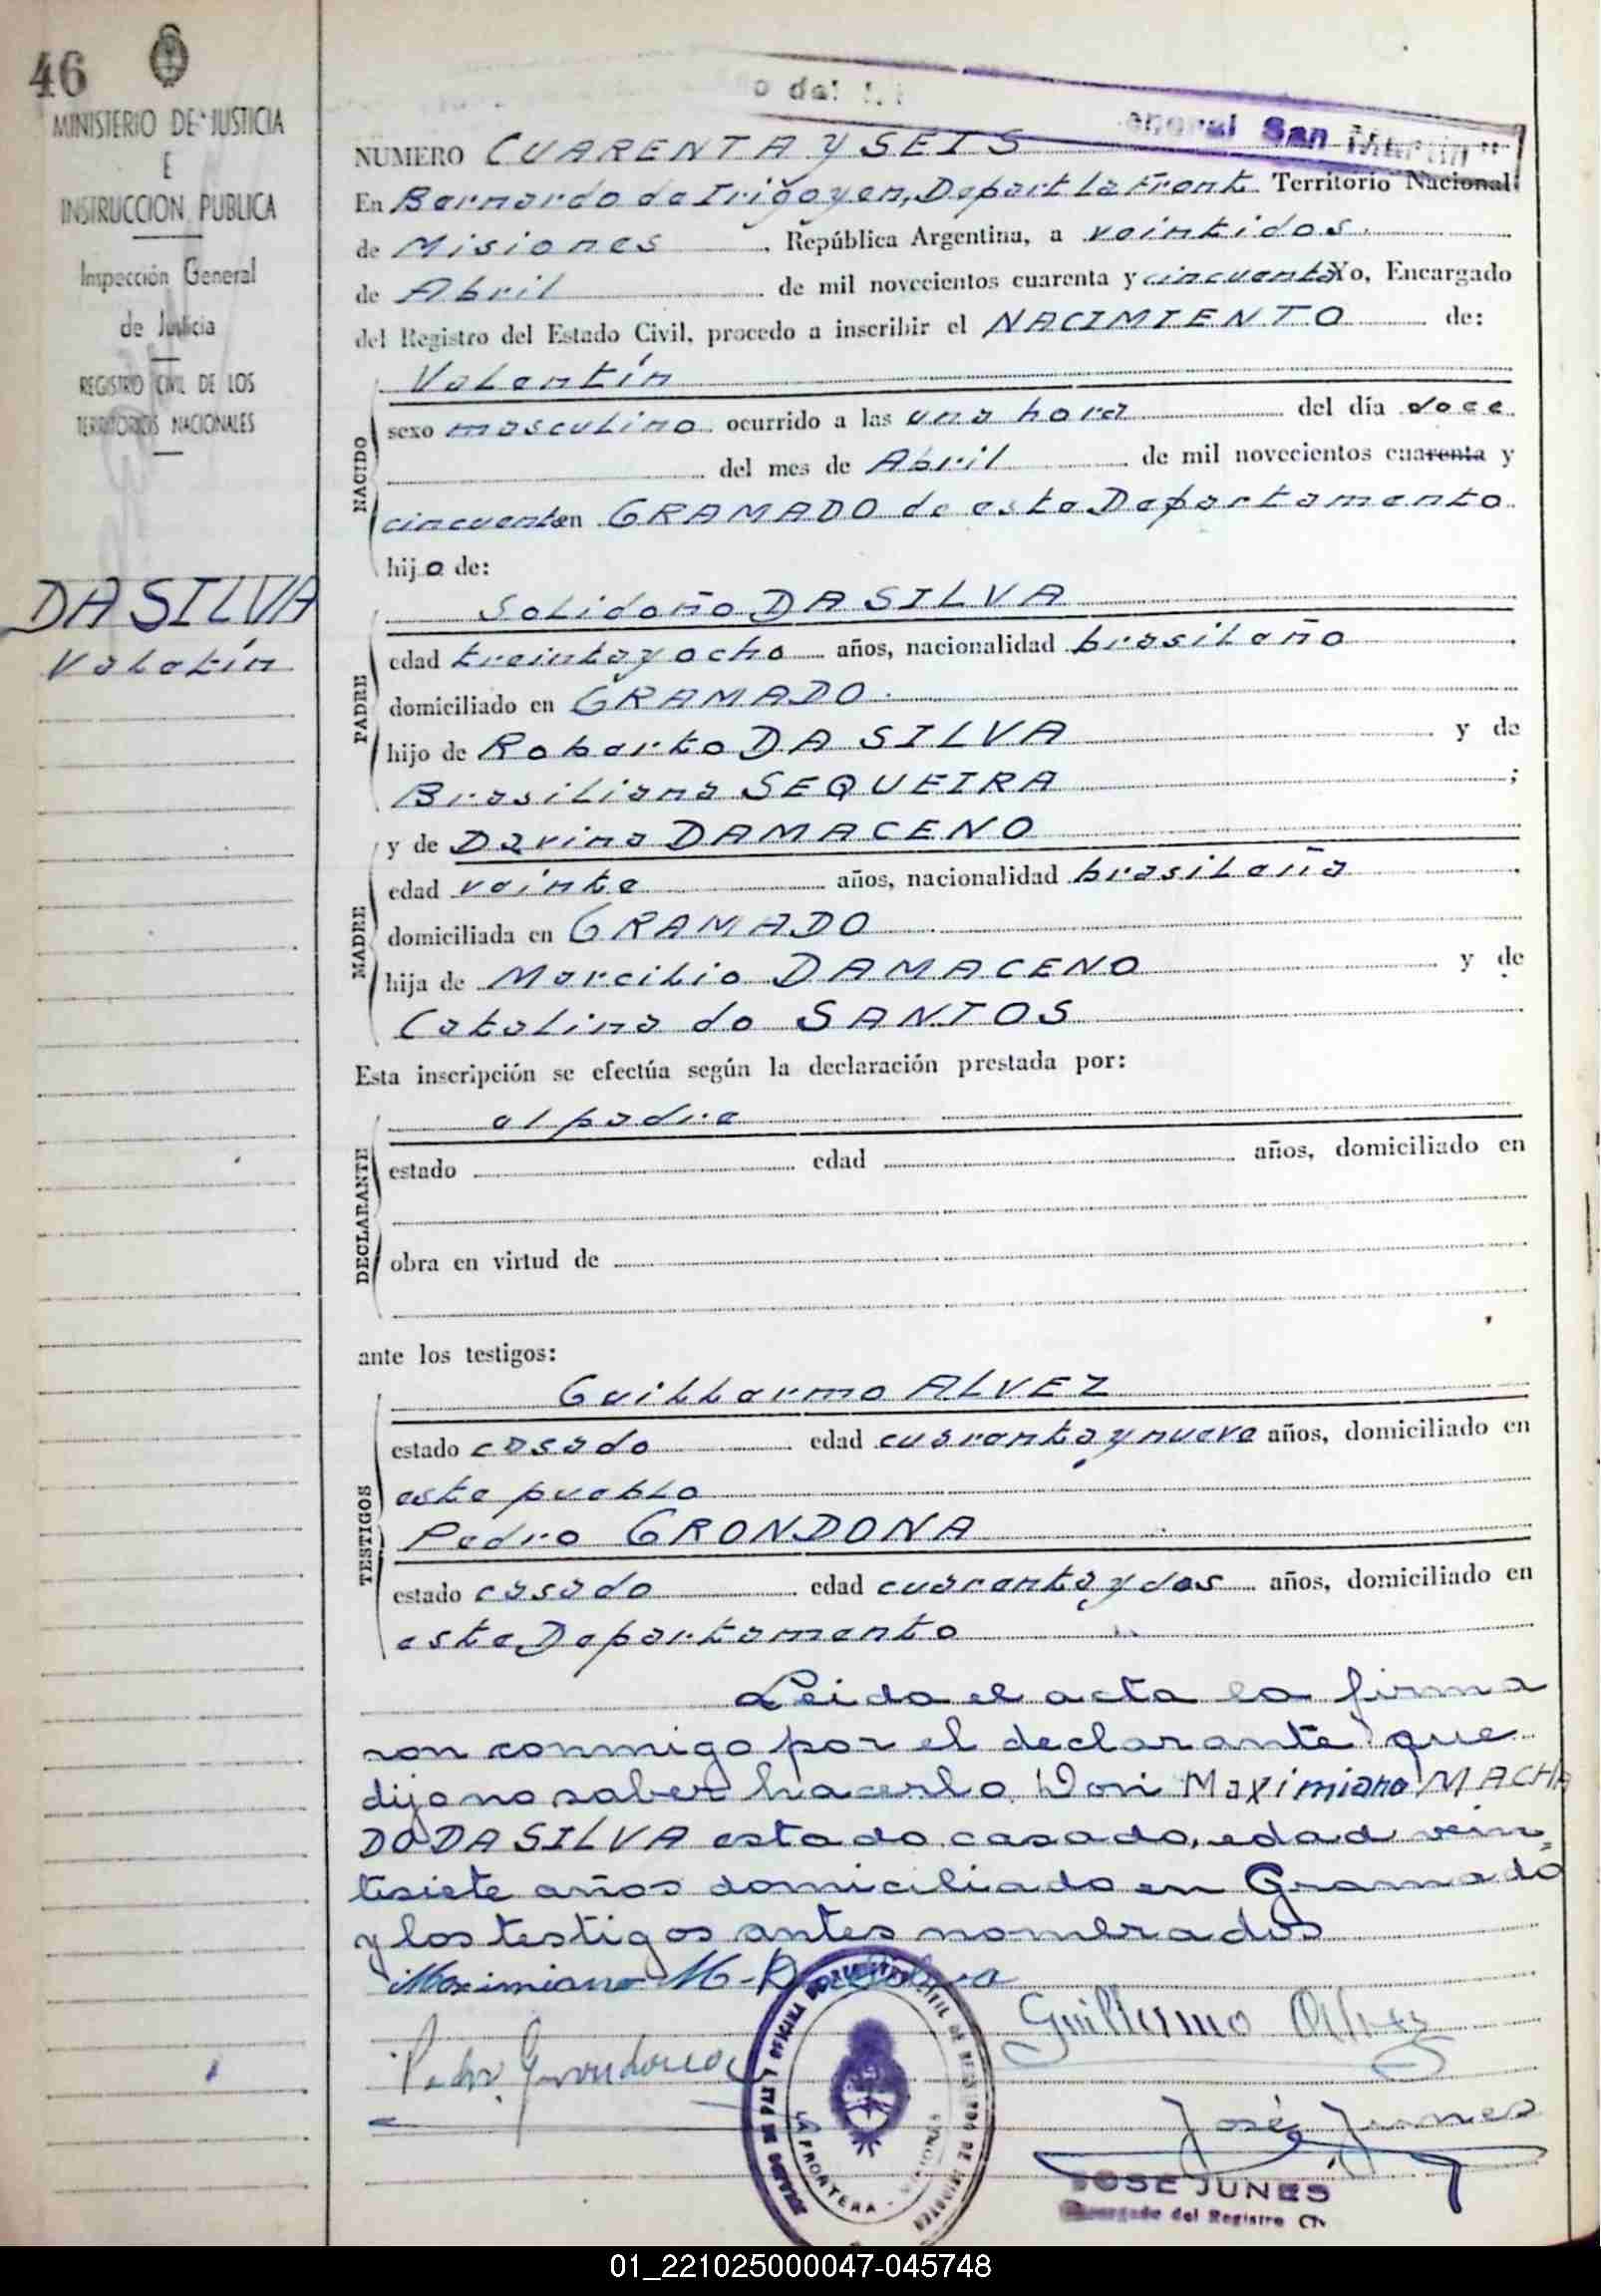 46
MINISTERIO DE JUSTICIA
E
INSTRUCCION PUBLICA
Inspección General
de Justicia
REGISTRO CIVIL DE LOS
TERRITORIOS NACIONALES
DA SILVA
Valetín
eneral San Martín"
NUMERO CUARENTA Y SEIS
En Bernardo de Irigoyen, Depart La Front Territorio Nacional
de Misiones, República Argentina, a veintidos
de Abril de mil novecientos cuarenta y cincuenta Yo, Encargado
del Registro del Estado Civil, procedo a inscribir el NACIMIENTO de:
NACIDO
Valentín
sexo masculino ocurrido a las una hora del día doce
del mes de Abril de mil novecientos cuarenta y
cincuenta en GRAMADO de este Departamento
hijo de:
PADRE
Solidoño DA SILVA
edad treinta y ocho años, nacionalidad brasileño
domiciliado en GRAMADO
hijo de Roberto DA SILVA y de
Brasiliana SEQUEIRA ;
MADRE
y de Davina DAMACENO
edad veinte años, nacionalidad brasileña
domiciliada en GRAMADO
hija de Marcilio DAMACENO y de
Catalina do SANTOS
Esta inscripción se efectúa según la declaración prestada por:
DECLARANTE
el padre
estado edad años, domiciliado en
obra en virtud de
ante los testigos:
TESTIGOS
Guillermo ALVEZ
estado casado edad cuarenta y nueve años, domiciliado en
este pueblo
Pedro GRONDONA
estado casado edad cuarenta y dos años, domiciliado en
este Departamento
Leida el acta la firma
ron conmigo por el declarante que
dijo no saber hacerlo Don Maximiano MACHA
DO DA SILVA estado casado, edad vein
tisiete años domiciliado en Gramado
y los testigos antes nombrados
Maximiano M. Da Silva
Guillermo Alvez
Pedro Grondona
José Junes
LA FRONTERA - MISIONES
JOSE JUNES
Encargado del Registro C.
01_221025000047-045748